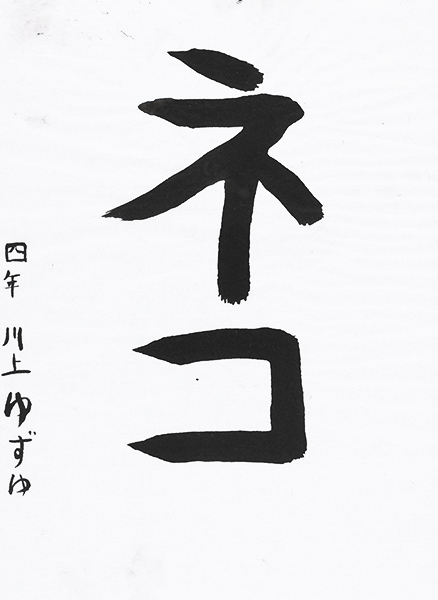 ネコ
四年 川上ゆずゆ